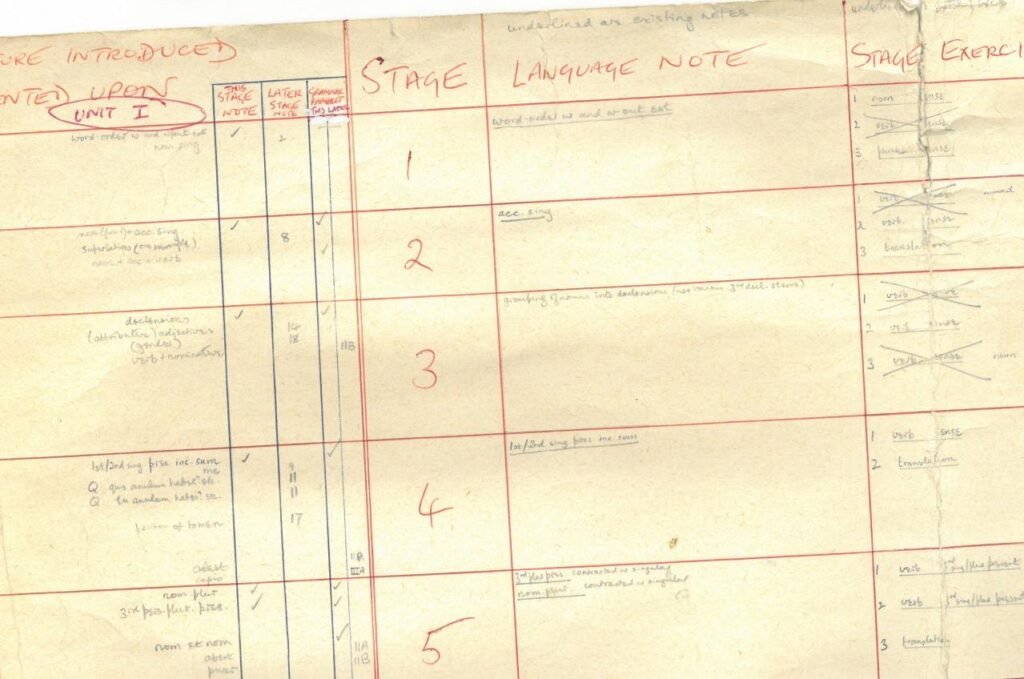 underlined as existing notes
URE INTRODUCED
ONTED UPON
UNIT I
THIS STAGE NOTE
LATER STAGE NOTE
STAGE
LANGUAGE NOTE
STAGE EXERCI
word order w and w/out est
nom sing
✓
2
1
word order w and w/out est
1 nom sense
2 verb sense
3 sense
nom + acc sing
superlatives
nom + acc + verb
✓
8
✓
✓
2
acc. sing
1 verb sense
2 verb sense
3 translation
declensions
(attributive) adjectives
(gender)
verb + nominative
✓
14
18
✓
IIB
3
grouping of nouns into declensions 3rd decl. stems)
1 verb sense
2 verb sense
3 verb sense noun
1st/2nd sing pres inc. sum
me
Q quis anulum habet? etc.
Q tu anulum habes? etc.
position of tamen
✓
9
11
11
17
✓
4
1st/2nd sing pres inc sum
1 verb sense
2 translation
abest
capio
IIA
IIIA
nom plur
3rd pers. plur. pres.
nom et nom
✓
✓
✓
✓
✓
IIA
IIB
5
3rd plur pres. contrasted w singular
nom plur. contrasted w singular
1 verb 3rd sing/plur present
2 verb 3rd sing/plur pres
3 translation